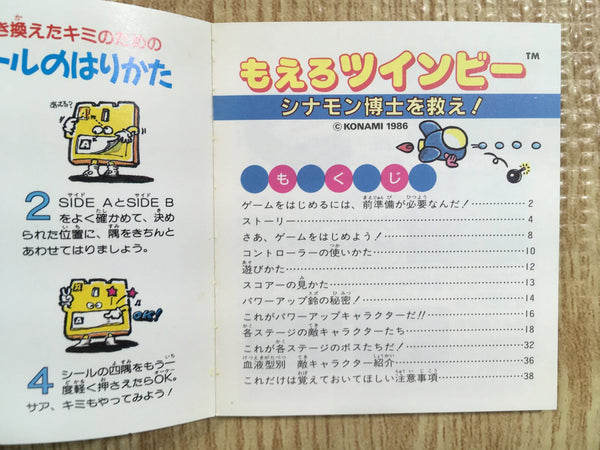 き換えたキミのための
ールのはりかた
あれっ?
2 SIDE AとSIDE B
をよく確かめて、決め
られた位置に、隅をきちんと
あわせてはりましょう。
OK!
4 シールの四隅をもう一
度軽く押さえたらOK。
サア、キミもやってみよう!
もえろツインビー™
シナモン博士を救え!
© KONAMI 1986
もくじ
ゲームをはじめるには、前準備が必要なんだ! 2
ストーリー 4
さあ、ゲームをはじめよう! 8
コントローラーの使いかた 10
遊びかた 12
スコアーの見かた 13
パワーアップ鈴の秘密! 14
これがパワーアップキャラクターだ!! 16
各ステージの敵キャラクターたち 18
これが各ステージのボスたちだ! 32
血液型別 敵キャラクター紹介 36
これだけは覚えておいてほしい注意事項 38